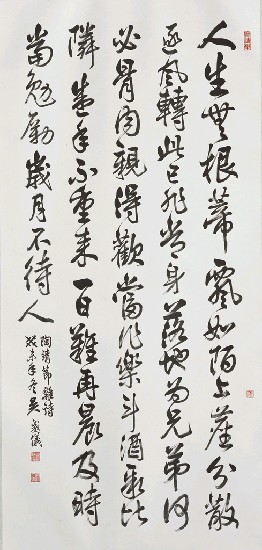 人生無根蒂飄如陌上塵分散
逐風轉此已非常身落地為兄弟何
必骨肉親得歡當作樂斗酒聚比
隣盛年不重來一日難再晨及時
當勉勵歲月不待人
陶靖節雜詩
癸未年冬吳